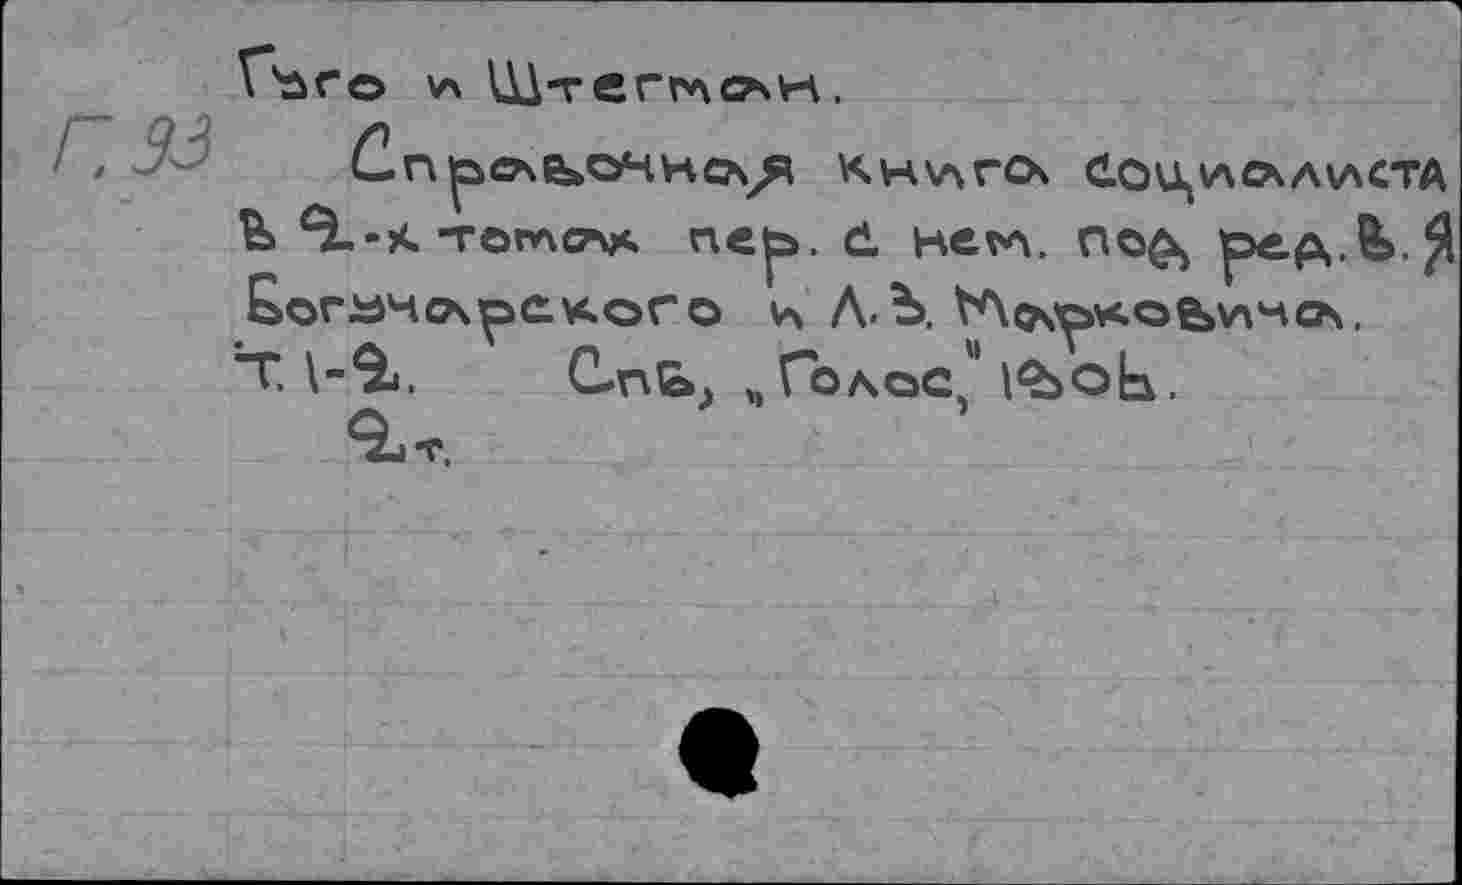 Гуго и Штегман.
Г. 93 Справочная книга социалиста
В 2-х томах пер. с нем. под ред. В. Я
Богучарского и Л. З. Марковича.
Т. 1-2. СпБ, „Голос", 1906.
2 т.